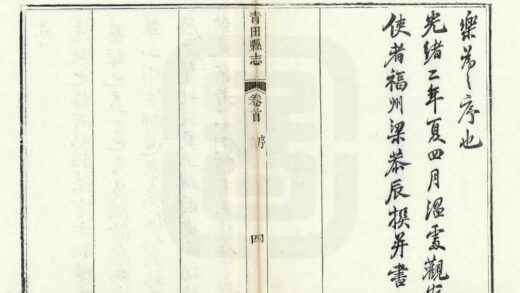 樂爲之序也
光緒二年夏四月温處觀
使者福州梁恭辰撰并書
青田縣志 卷首 序 四